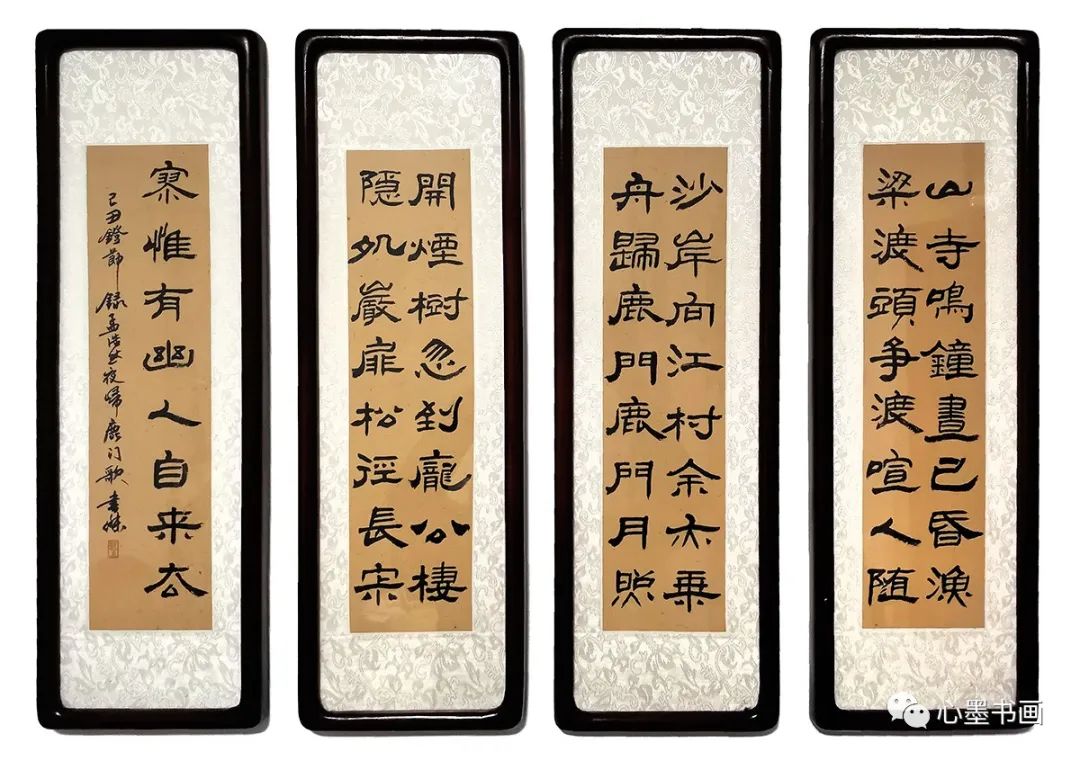 山寺鳴鐘晝已昏漁
梁渡頭争渡喧人随
沙岸向江村余亦乗
舟歸鹿門鹿門月照
開煙樹忽到龐公棲
隱処巖扉松徑長寂
寥惟有幽人自来去
己丑鐙節 録孟浩然夜歸鹿门歌
心墨书画